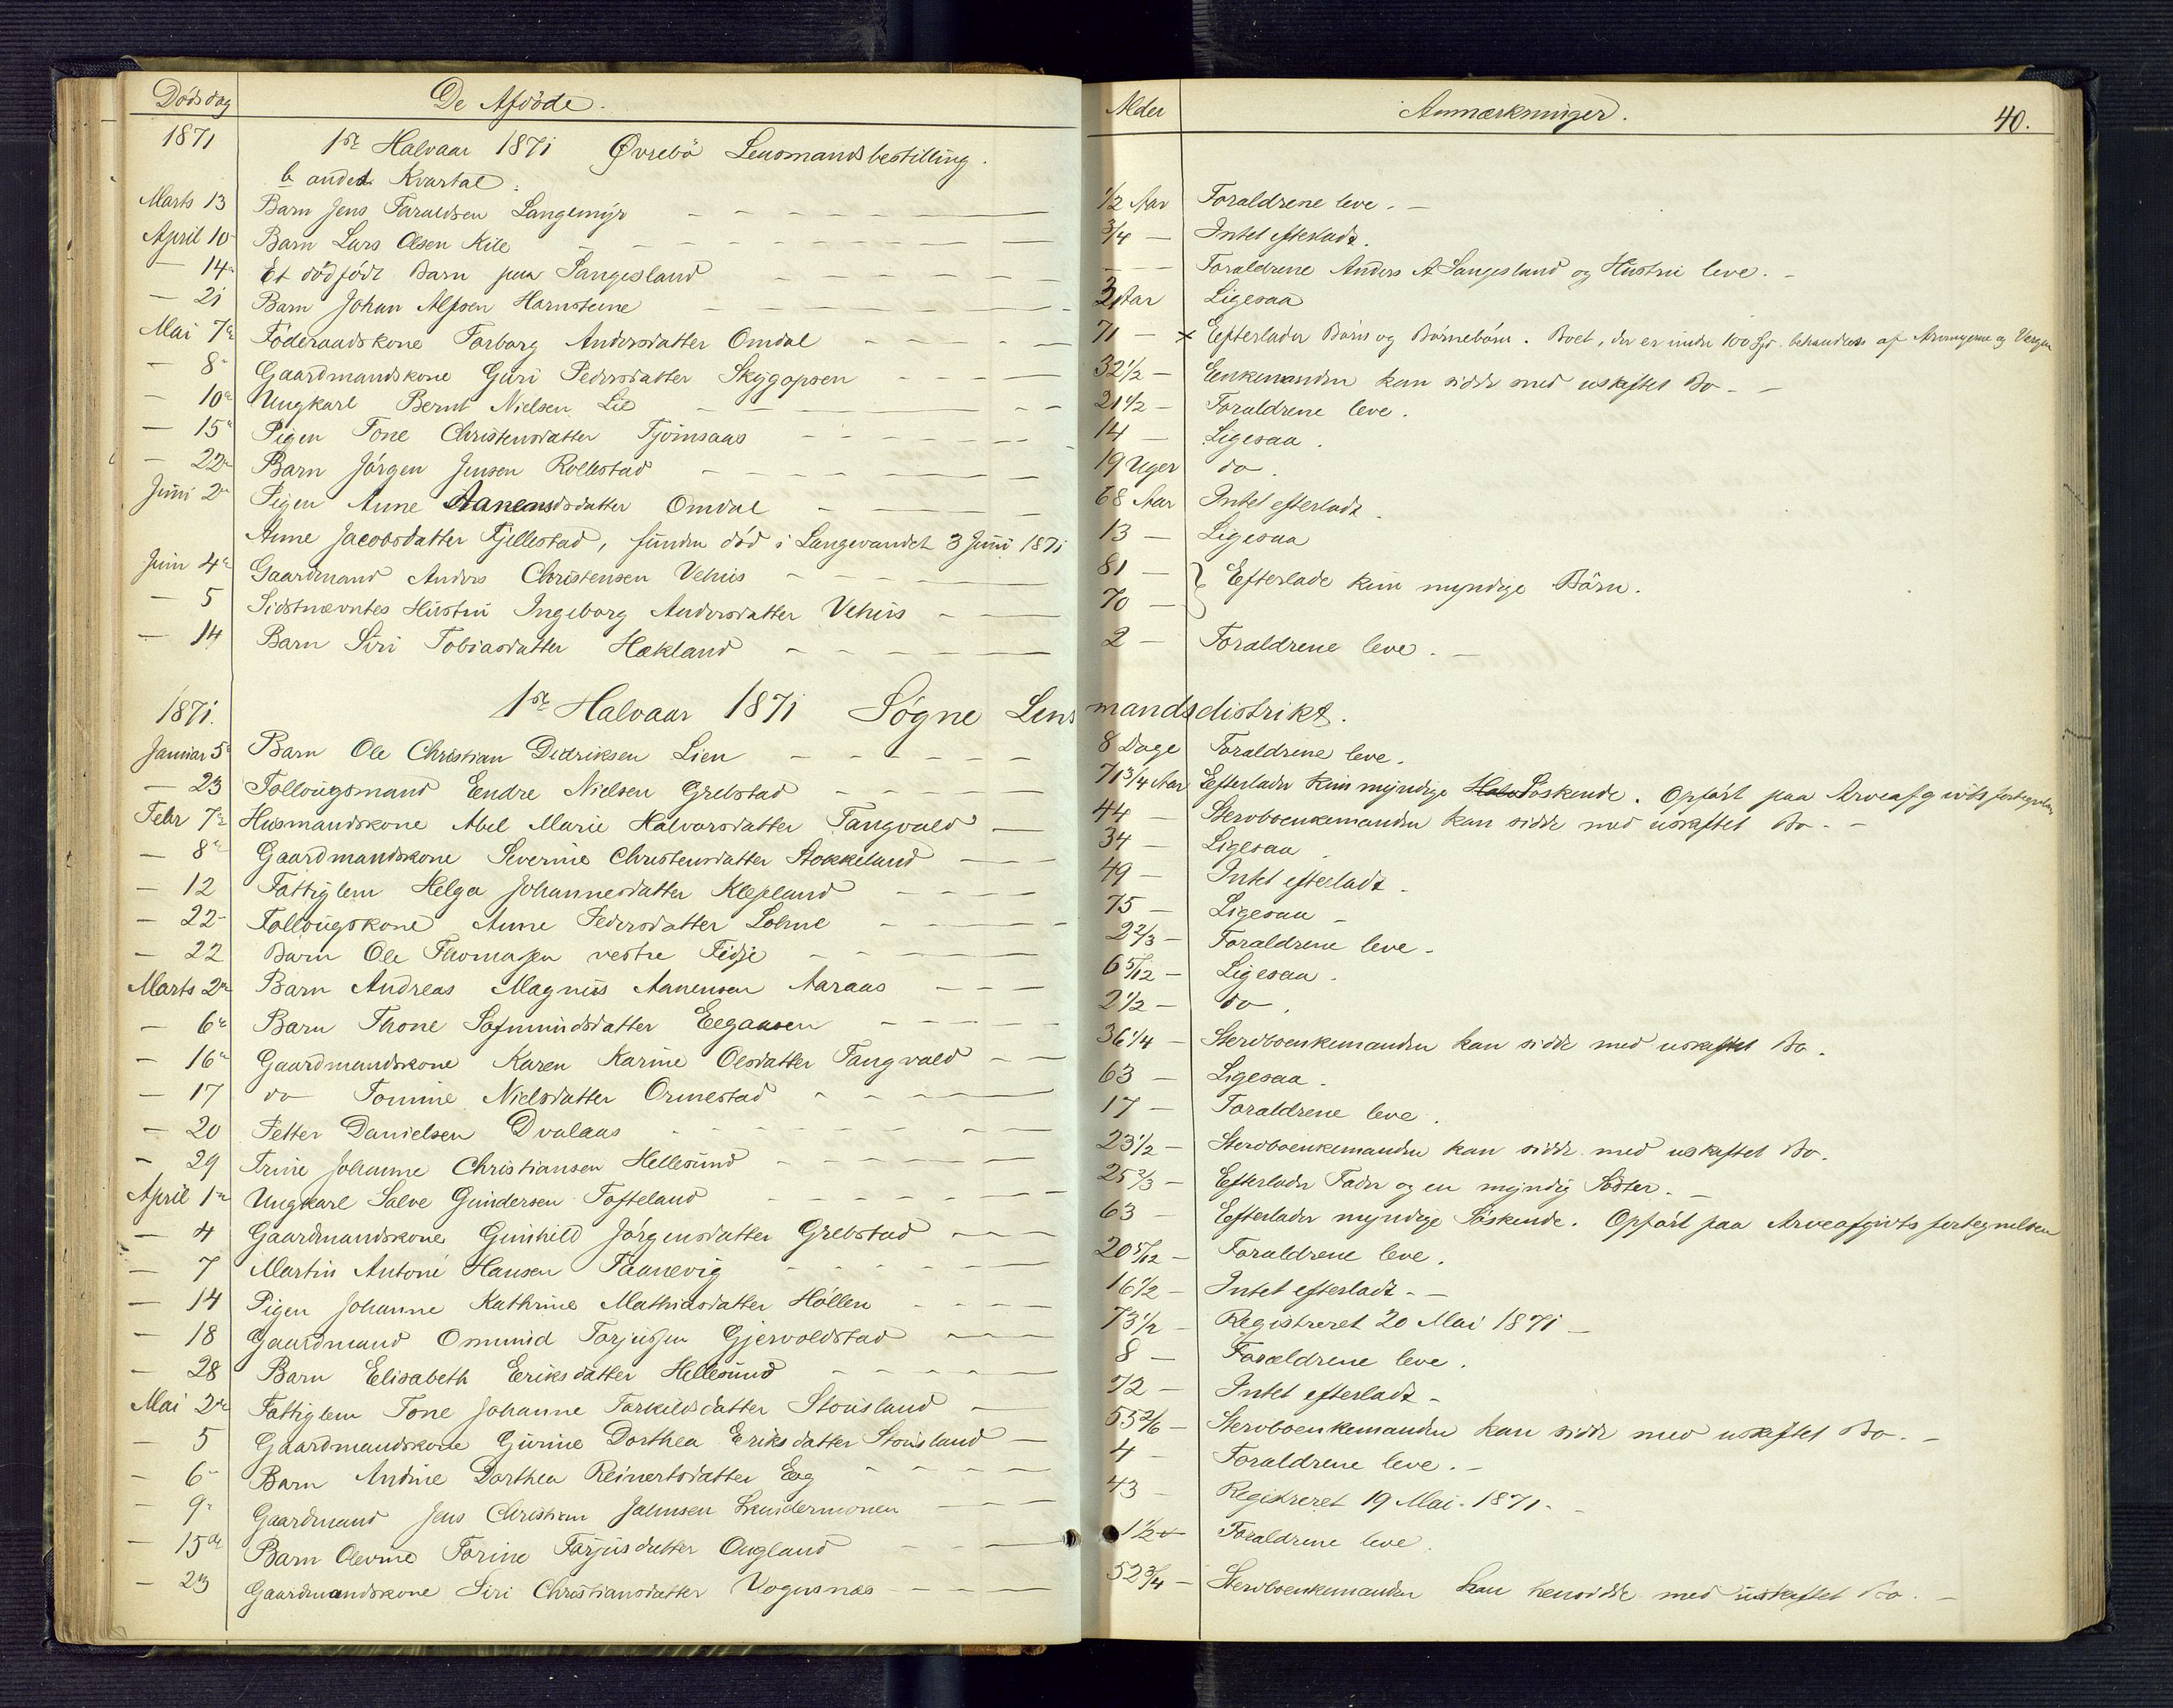 Dödsdag De Afdöde. Alder Anmærkninger. 40.
1871 1ste Halvaar 1871 Øvrebö Lensmandsbestilling.
b andet Kvartal.
Marts 13 Barn Jens Taraldsen Langemyr 1/2 Aar Forældrene leve.
April 10 Barn Lars Olsen Kile 3/4 Intet efterladt.
14 Et dödfödt Barn paa Sangesland Forældrene Anders A Sangesland og Hustru leve.
21 Barn Johan Alfsen Harnsteine Aar Ligesaa
Mai 7 Föderaadskone Torborg Andersdatter Omdal 71 x Efterlader Börn og Börnebörn. Boet, der er under 100 Spd. behandles af Arvingerne og Vergen
8 Gaardmandskone Guri Pedersdatter Skyggopsen 32 1/2 Enkemanden kan sidde med uskiftet Bo
10 Ungkarl Bernt Nielsen Lie 21 1/2 Forældrene leve.
15 Pigen Tone Christensdatter Tjömsaas 14 Ligesaa.
22 Barn Jörgen Jensen Rollestad 19 Uger do.
Juni 2 Pigen Anne Aanensdatter Omdal 68 Aar Intet efterladt.
Anne Jacobsdatter Fjellestad, funden död i Langevandet 3 Juni 1871 13 Ligesaa
Juni 4 Gaardmand Anders Christensen Vehus 81 } Efterlade kun myndige Börn.
5 Sidstnævntes Hustru Ingeborg Andersdatter Vehus 70
14 Barn Siri Tobiasdatter Hækland 2 Forældrene leve.
1871. 1ste Halvaar 1871 Søgne Lensmandsdistrikt.
Januar 5 Barn Ole Christian Didriksen Lien 8 Dage Forældrene leve.
23 Follougsmand Eendre Nielsen Grebstad 71 3/4 Aar Efterlader kun myndige Söskende. Opfört paa Arveafgiftsfortegnelsen
Febr 7 Husmandskone Abel Marie Halvorsdatter Tangvald 44 Stervboenkemanden kan sidde med uskiftet Bo
8 Gaardmandskone Severine Christensdatter Stokkeland 34 Ligesaa
12 Fattiglem Helga Johannesdatter Klepland 49 Intet efterladt.
22 Follougskone Anne Pedersdatter Lohne 75 Ligesaa
22 Barn Ole Thomassen vestre Fidje 2 2/3 Forældrene leve.
Marts 2 Barn Andreas Magnus Aanensen Aaraas 6 5/12 Ligesaa.
6 Barn Thone Sofmundsdatter Eegaasen 2 1/2 do.
16 Gaardmandskone Karen Karine Olsdatter Tangvald 36 1/4 Stervboenkemanden kan sidde med uskiftet Bo.
17 do Tomine Nielsdatter Ormestad 63 Ligesaa.
20 Petter Danielsen Dvalaas 17 Forældrene leve.
29 Trine Johanne Christiansen Hellesund 23 1/2 Stervboenkemanden kan sidde med uskiftet Bo.
April 1 Ungkarl Salve Gundersen Tofteland 25 2/3 Efterlader Fader og en myndig Söster.
4 Gaardmandskone Gunhild Jörgensdatter Grebstad 63 Efterlader myndige Söskende. Opfört paa Arveafgiftsfortegnelsen
7 Martin Antoni Hansen Faanevig 20 5/12 Forældrene leve.
14 Pigen Johanne Kathrine Mathiasdatter Höllen 16 1/2 Intet efterladt.
18 Gaardmand Omund Torjussen Gjervoldstad 73 1/2 Registreret 20 Mai 1871
28 Barn Elisabeth Eriksdatter Hellesund 8 Forældrene leve.
Mai 2 Fattiglem Tone Johanne Torkildsdatter Stousland 72 Intet efterladt
5 Gaardmandskone Gurine Dorthea Eriksdatter Stousland 55 2/6 Stervboenkemanden kan sidde med uskiftet Bo.
6 Barn Andine Dorthea Reinertsdatter Eeg 4 Forældrene leve.
9 Gaardmand Jens Christian Jahnsen 43 Registreret 19 Mai 1871
15de Barn Olevine Torine Torjusdatter Augland 1 1/2 Forældrene leve.
23 Gaardmandskone Siri Christiansdatter Vogusnæs 52 3/4 Stervboenkemanden kan hensidde med uskiftet Bo.